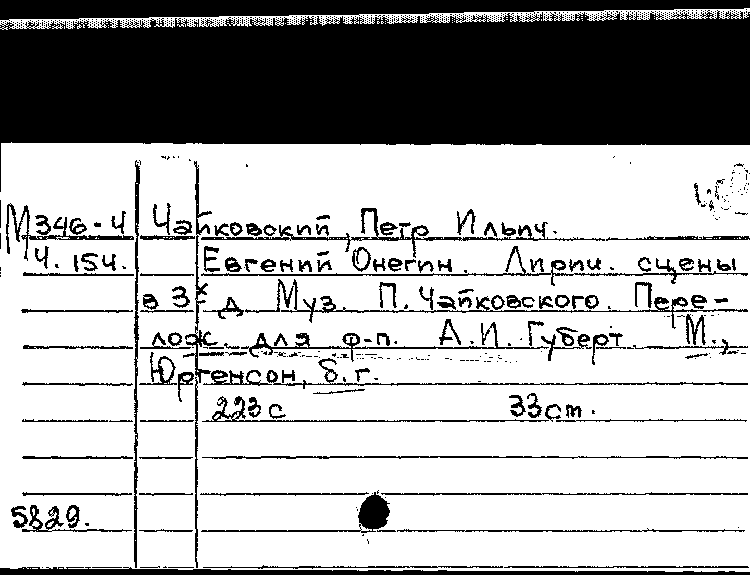 М346-4 Чайковский, Петр Ильич.
Ч. 154. Евгений Онегин. Лирич. сцены
в 3х д Муз. П. Чайковского. Пере-
лож. для ф-п. А.И. Губерт. М.,
Юргенсон, б.г.
223 с 33 cm.
5829.